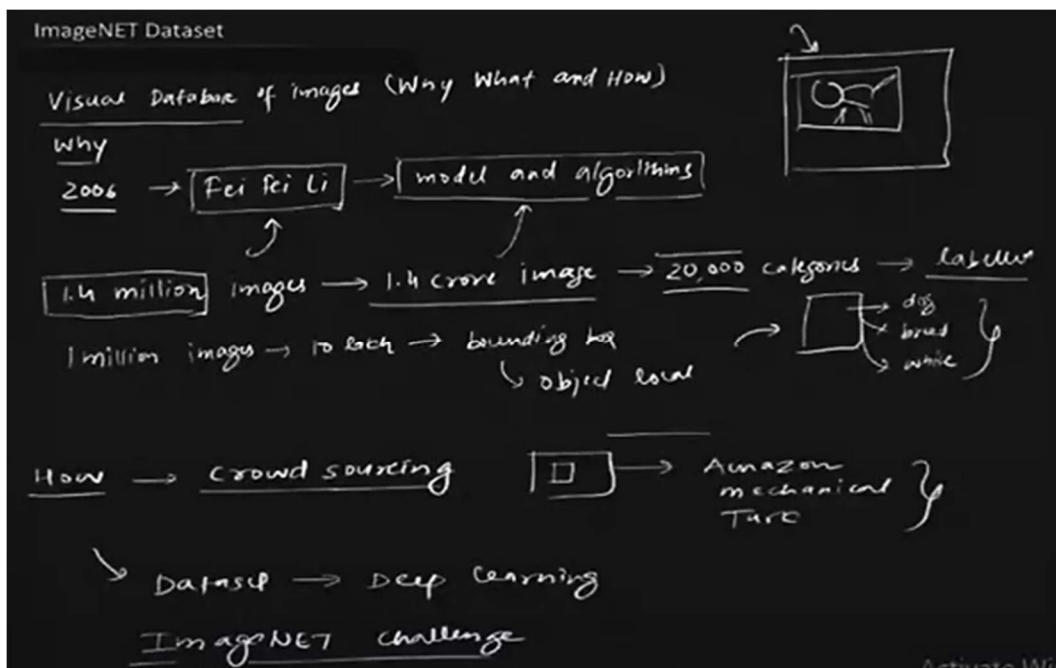 ImageNET Dataset
Visual Database of images (Why What and How)
Why
2006 → Fei Fei Li → model and algorithms
1.4 million images → 1.4 crore image → 20,000 categories → labelled
→ dog
→ breed
→ white
1 million images → 10 lakh → bounding box
↳ object local
How → crowd sourcing
→ Amazon
mechanical
Turk
Dataset → Deep learning
ImageNET challenge